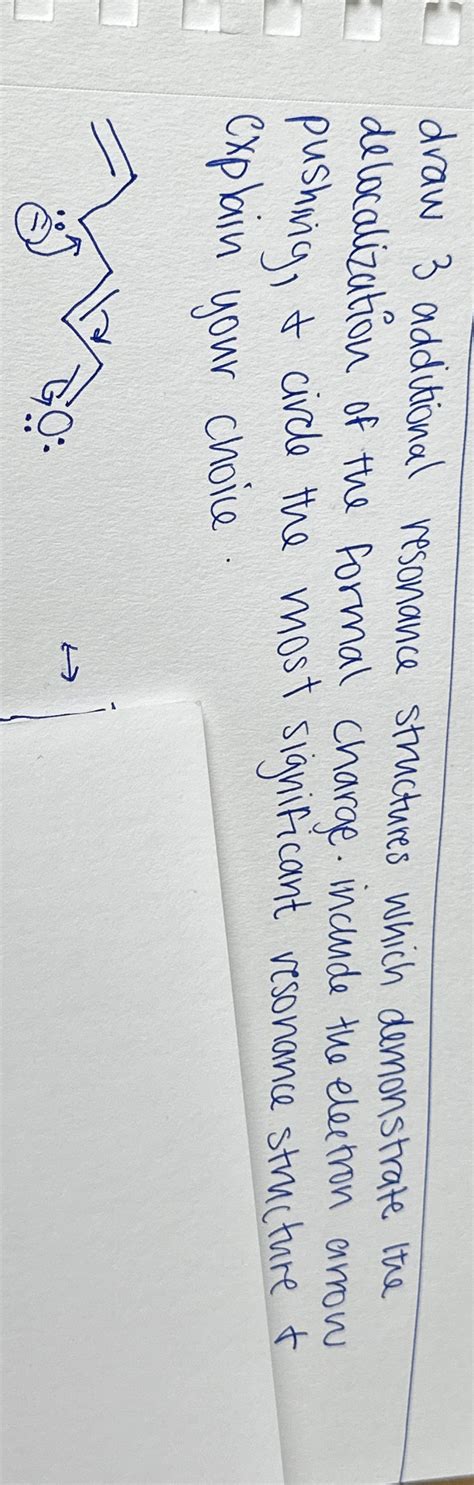 draw 3 additional resonance structures which demonstrate the
delocalization of the formal charge. include the electron arrow
pushing, + circle the most significant resonance structure +
explain your choice.
O